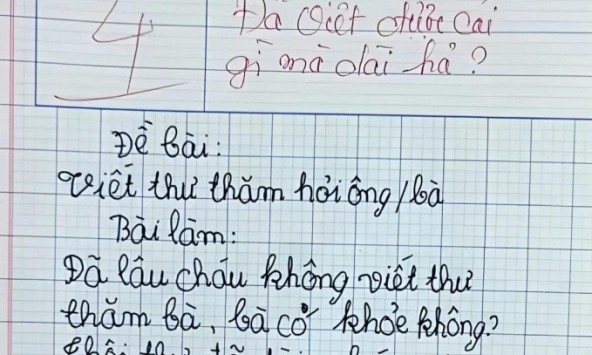 4
Đã viết được cái
gì mà dài hả?
Đề bài:
Viết thư thăm hỏi ông/bà
Bài làm:
Đã lâu cháu không viết thư
thăm bà, bà có khỏe không?